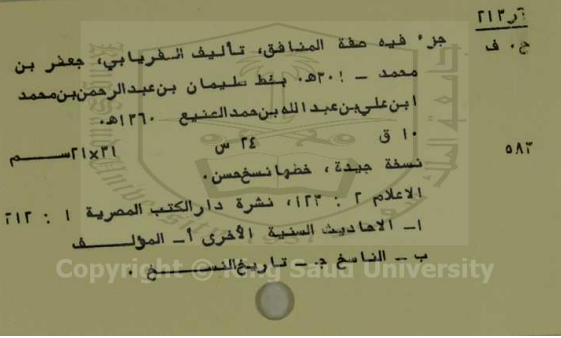 ٢١٣ر
ج ٠ ف
جزء فيه صفة المنافق، تأليف الفريابي، جعفر بن
محمد - ٣٠١ه٠ بخط سليمان بن عبدالرحمن بن محمد
ابن علي بن عبدالله بن حمد المنيع ١٣٦٠ه٠
١٠ ق ٢٤ س ٣١×٢١ ســـم
٥٨٣
نسخة جيدة، خطها نسخ حسن٠
الاعلام ٢ : ١٢٣، نشرة دار الكتب المصرية ١ :
١- الاحاديث السنية الأخرى أ- المؤلــف
ب - الناسخ ج - تاريخ النســـخ ٠
Copyright © King Saud University